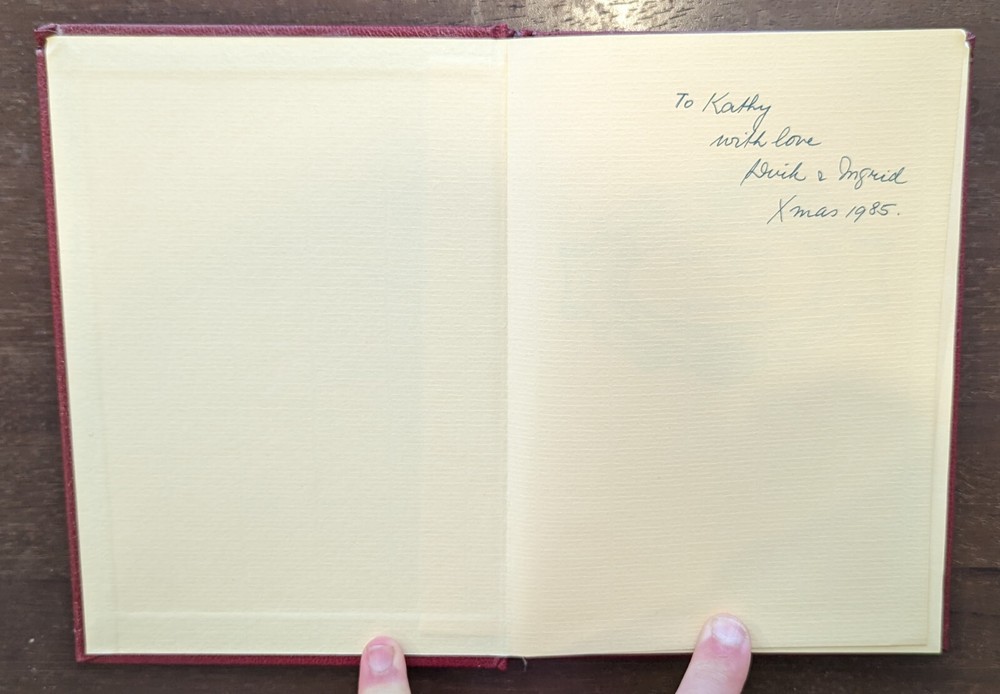 To Kathy
with love
& Ingrid
Xmas 1985.